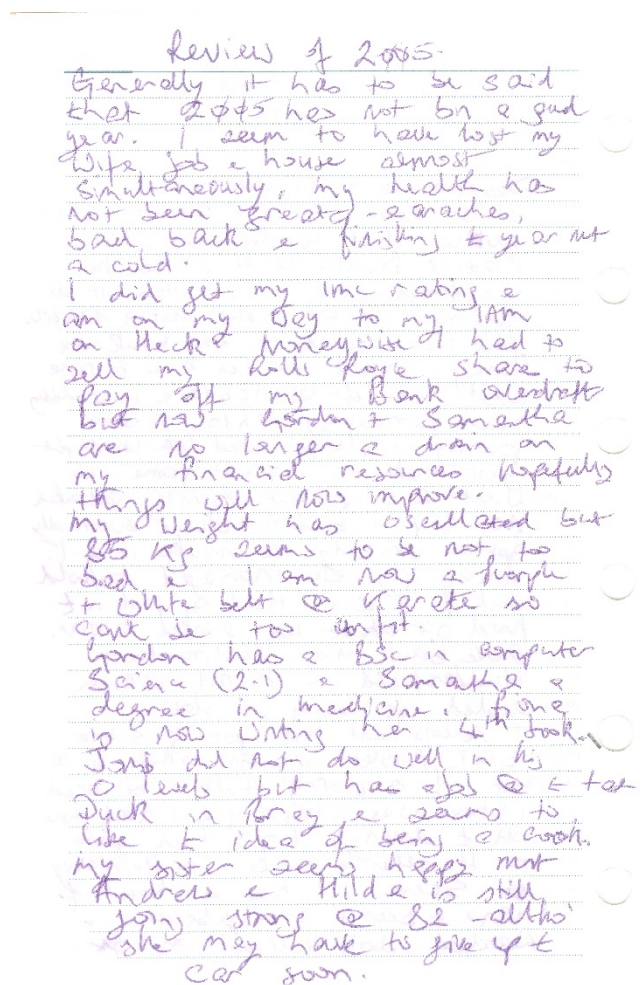 Review of 2005.
Generally it has to be said
that 2005 has not bn a gud
year. I seem to have lost my
wife, job & house almost
simultaneously, my health has
not been great - earaches,
bad back & finishing t year
a cold.
I did get my IMC rating &
am on my way to my IAM
on Heck & Moneywise I had to
sell my Rolls Royce share to
pay off my Bank overdraft
but now Gordon + Samantha
are no longer a drain on
my financial resources hopefully
things will now improve.
my weight has oscillated but
85 Kg seems to be not too
bad & I am now a Purple
+ White belt @ Karate so
cant be too unfit.
Gordon has a BSc in Computer
Science (2.1) & Samantha a
degree in medicine.
is now writing her 4th book.
did not do well in his
O levels but has a job @ t
Duck in Bray & seems to
like t idea of being a cook.
my sister seems happy
Andrew & Hilda is still
going strong @ 82 - altho'
she may have to give up t
car soon.